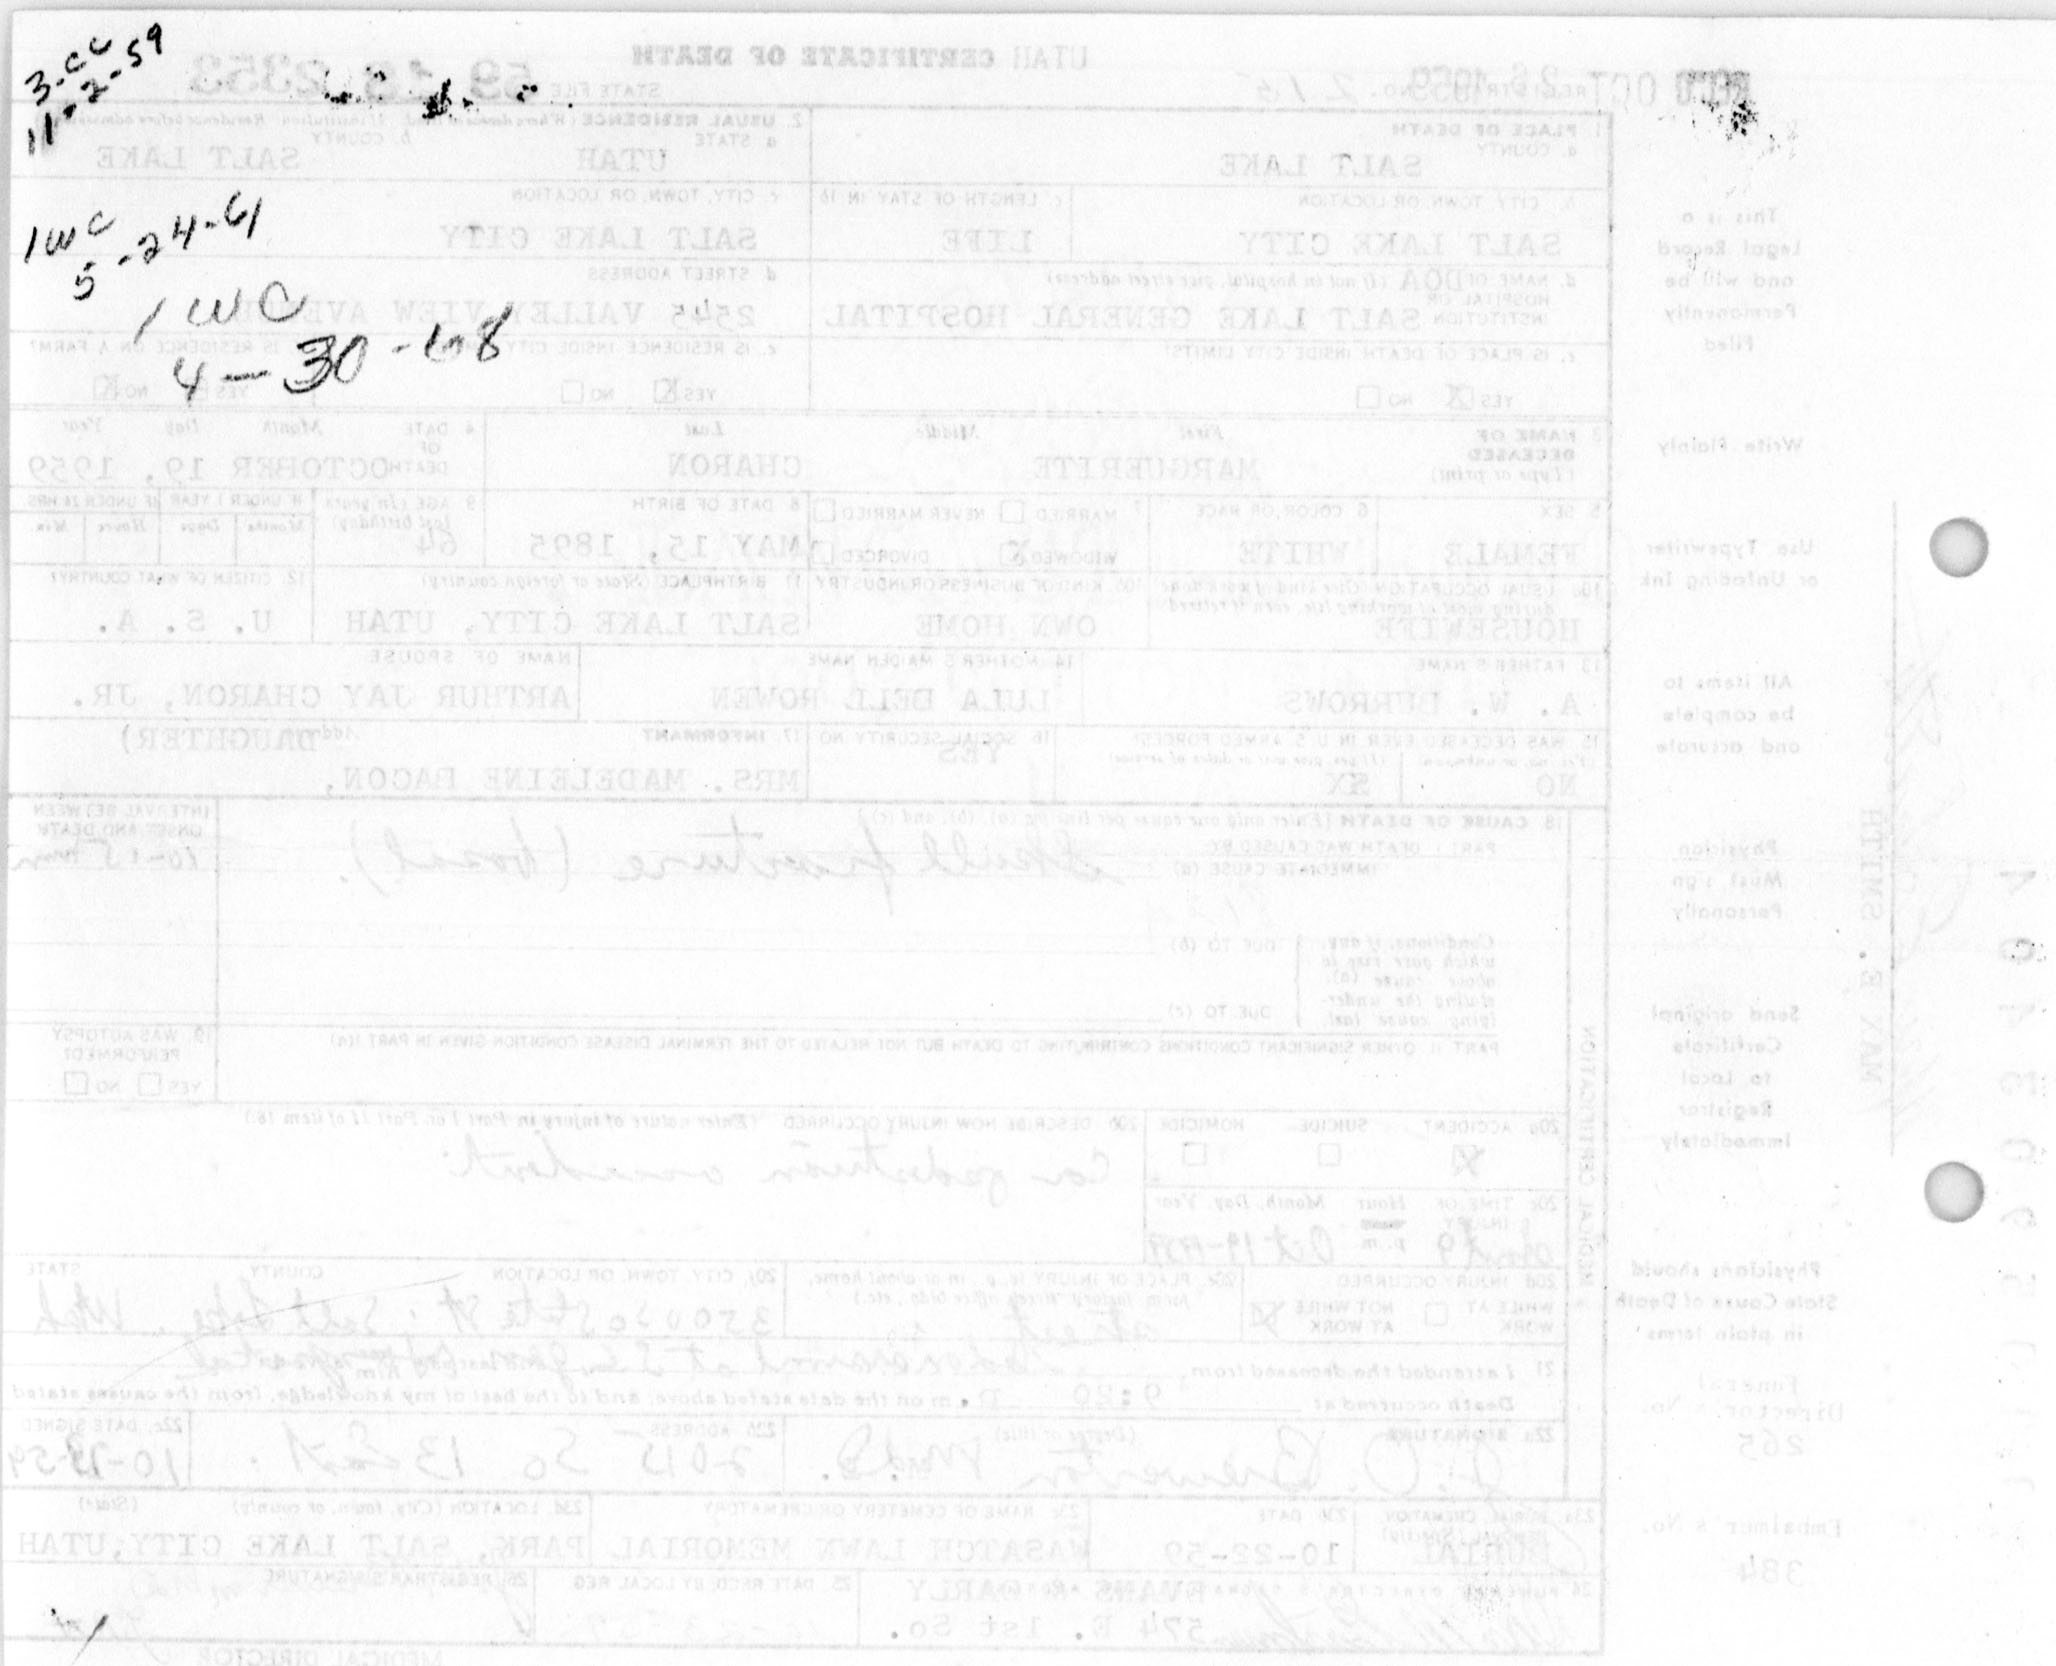 3-CC
11-2-59
1WC
5-24-61
1 WC
4-30-68
UTAH CERTIFICATE OF DEATH
STATE FILE 59 18 2353
REGISTRAR'S NO. 215
REC'D OCT 26 1959
1 PLACE OF DEATH
a. COUNTY
SALT LAKE
2. USUAL RESIDENCE (Where deceased lived. If institution: Residence before admission)
a STATE
UTAH
b. COUNTY
SALT LAKE
b. CITY, TOWN, OR LOCATION
SALT LAKE CITY
c. LENGTH OF STAY IN 1b
LIFE
c. CITY, TOWN, OR LOCATION
SALT LAKE CITY
d. NAME OF (If not in hospital, give street address)
HOSPITAL OR
INSTITUTION
DOA
SALT LAKE GENERAL HOSPITAL
d STREET ADDRESS
2545 VALLEY VIEW AVENUE
e. IS PLACE OF DEATH INSIDE CITY LIMITS?
YES X NO
e. IS RESIDENCE INSIDE CITY LIMITS?
YES X NO
IS RESIDENCE ON A FARM?
YES NO X
3 NAME OF
DECEASED
(Type or print)
First Middle Last
MARGUERITE CHARON
4 DATE
OF
DEATH
Month Day Year
OCTOBER 19, 1959
5 SEX
FEMALE
6 COLOR OR RACE
WHITE
7 MARRIED NEVER MARRIED
WIDOWED X DIVORCED
8 DATE OF BIRTH
MAY 15, 1895
9 AGE (In years
last birthday)
64
IF UNDER 1 YEAR IF UNDER 24 HRS
Months Days Hours Min
10a USUAL OCCUPATION (Give kind of work done
during most of working life, even if retired)
HOUSEWIFE
10b. KIND OF BUSINESS OR INDUSTRY
OWN HOME
11 BIRTHPLACE (State or foreign country)
SALT LAKE CITY, UTAH
12. CITIZEN OF WHAT COUNTRY?
U. S. A.
13 FATHER'S NAME
A. W. BURROWS
14. MOTHER'S MAIDEN NAME
LULA BELL ROWEN
NAME OF SPOUSE
ARTHUR JAY CHARON, JR.
15 WAS DECEASED EVER IN U.S. ARMED FORCES?
(Yes, no, or unknown) (If yes, give war or dates of service)
NO
16 SOCIAL SECURITY NO
YES
17. INFORMANT Address
MRS. MADELEINE BACON,
DAUGHTER)
18 CAUSE OF DEATH [Enter only one cause per line for (a), (b), and (c)]
PART I DEATH WAS CAUSED BY:
IMMEDIATE CAUSE (a)
Skull fracture (basal).
INTERVAL BETWEEN
ONSET AND DEATH
10-15 min
Conditions, if any,
which gave rise to
above cause (a),
stating the under-
lying cause last.
DUE TO (b)
DUE TO (c)
PART II OTHER SIGNIFICANT CONDITIONS CONTRIBUTING TO DEATH BUT NOT RELATED TO THE TERMINAL DISEASE CONDITION GIVEN IN PART I(a)
19. WAS AUTOPSY
PERFORMED?
YES NO
MEDICAL CERTIFICATION
20a ACCIDENT SUICIDE HOMICIDE
X
20b DESCRIBE HOW INJURY OCCURRED (Enter nature of injury in Part I or Part II of item 18.)
Car pedestrian accident
20c TIME OF INJURY Hour Month, Day, Year
p.m.
abt 9 Oct 19-1959
20d INJURY OCCURRED
WHILE AT WORK NOT WHILE AT WORK X
20e. PLACE OF INJURY (e.g., in or about home,
farm, factory, street, office bldg., etc.)
street
20f. CITY, TOWN, OR LOCATION COUNTY STATE
3500 So State St; Salt Lake Utah
21 I attended the deceased from
Death occurred at 9:20 P.m on the date stated above; and to the best of my knowledge, from the causes stated
22a SIGNATURE (Degree or title)
Brewerton M.D.
22b ADDRESS
2015 So 13 East
22c. DATE SIGNED
23a. BURIAL, CREMATION,
REMOVAL (Specify)
BURIAL
23b DATE
10-22-59
23c NAME OF CEMETERY OR CREMATORY
WASATCH LAWN MEMORIAL PARK,
23d. LOCATION (City, town, or county) (State)
SALT LAKE CITY, UTAH
EVANS & EARLY
574 E. 1st So.
25 DATE RECD. BY LOCAL REG
26. REGISTRAR'S SIGNATURE
MEDICAL DIRECTOR
This is a
Legal Record
and will be
Permanently
Filed
Write Plainly
Use Typewriter
or Unfading Ink
All items to
be complete
and accurate
Physician
Must sign
Personally
Send original
Certificate
to Local
Registrar
Immediately
Physicians should
State Cause of Death
in plain terms
Funeral
Director's No.
265
Embalmer's No.
384
MAX E. SMITH